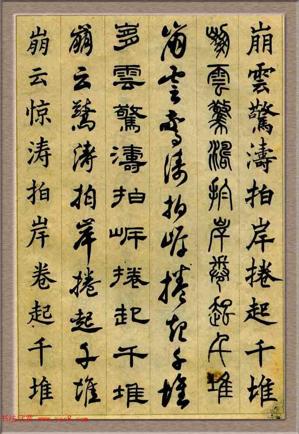 崩雲驚濤拍岸捲起千堆
崩雲驚濤拍岸捲起千堆
崩雲驚濤拍岸捲起千堆
崩雲驚濤拍岸捲起千堆
崩云驚濤拍岸捲起千堆
崩云惊涛拍岸卷起千堆